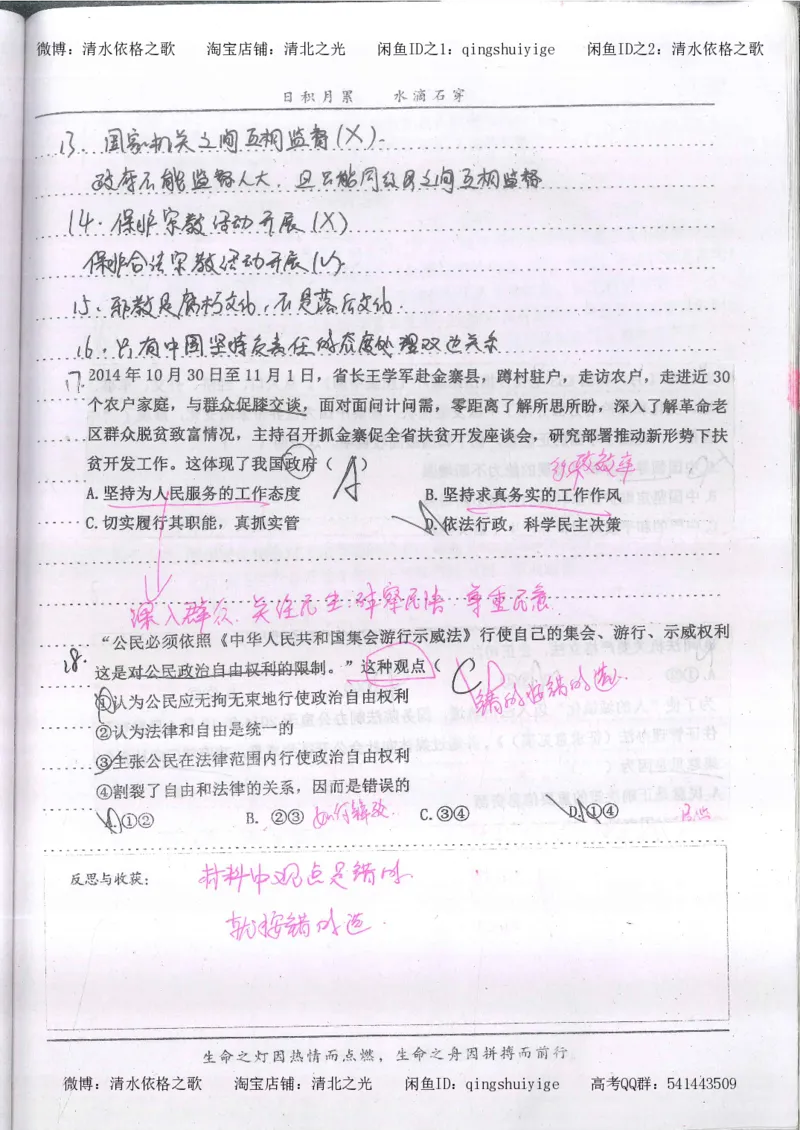 微博：清水依格之歌 淘宝店铺：清北之光 闲鱼ID之1：qingshuiyige 闲鱼ID之2：清水依格之歌
日积月累 水滴石穿
13. 国家机关之间互相监督(X).
政府不能监督人大，且只能同级之间互相监督
14. 保护宗教活动开展(X)
保护合法宗教活动开展(√).
15. 邪教是腐朽文化，不是落后文化.
16. 只有中国坚持负责任的态度处理双边关系
17. 2014年10月30日至11月1日，省长王学军赴金寨县，蹲村驻户，走访农户，走进近30
个农户家庭，与群众促膝交谈，面对面问计问需，零距离了解所思所盼，深入了解革命老
区群众脱贫致富情况，主持召开抓金寨促全省扶贫开发座谈会，研究部署推动新形势下扶
贫开发工作。这体现了我国政府（ A ）
A. 坚持为人民服务的工作态度 B. 坚持求真务实的工作作风
C. 切实履行其职能，真抓实管 D. 依法行政，科学民主决策
深入群众. 关注民生. 体察民情. 尊重民意.
18. “公民必须依照《中华人民共和国集会游行示威法》行使自己的集会、游行、示威权利
这是对公民政治自由权利的限制。”这种观点（ D
错的按错的选.
①认为公民应无拘无束地行使政治自由权利
②认为法律和自由是统一的
③主张公民在法律范围内行使政治自由权利
④割裂了自由和法律的关系，因而是错误的
A. ①② B. ②③ C. ③④ D. ①④
反思与收获： 材料中观点是错的
就按错的选.
生命之灯因热情而点燃，生命之舟因拼搏而前行
微博：清水依格之歌 淘宝店铺：清北之光 闲鱼ID：qingshuiyige 高考QQ群：541443509